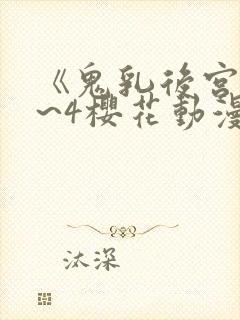 《鬼乳後宮
~4櫻花動漫
汰深